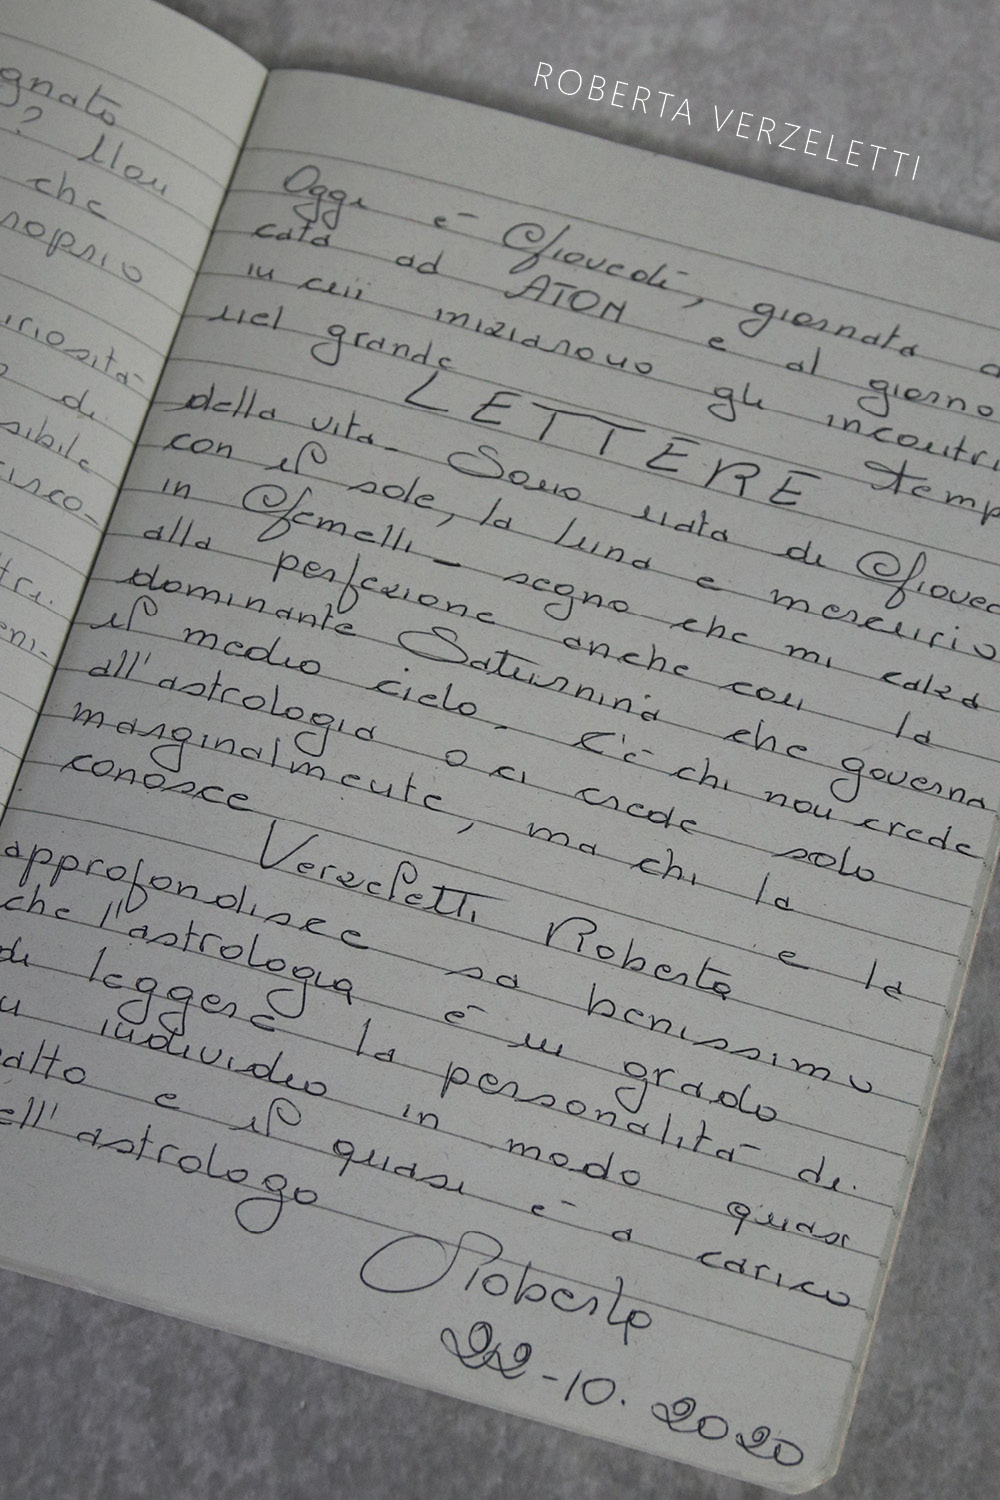 ROBERTA VERZELETTI
gnato
? 
che
roprio
riosità
di
sibile
isco-
tri.
Oggi è Giovedì, giornata
cata ad ATON e al giorno
in cui iniziarono gli incontri
nel grande Temp
LETTERE
della vita - Sono nata di Gioved
con il sole, la luna e mercurio
in Gemelli - segno che mi calza
alla perfezione anche con la
dominante Saturnina che governa
il medio cielo - C'è chi non crede
all'astrologia o ci crede solo
marginalmente, ma chi la
conosce e la
Verzeletti Roberta
approfondisce sa benissimo
che l'astrologia è in grado
di leggere la personalità di
n individuo in modo quasi
atto e il quasi è a carico
ell'astrologo
Roberta
22-10.2020